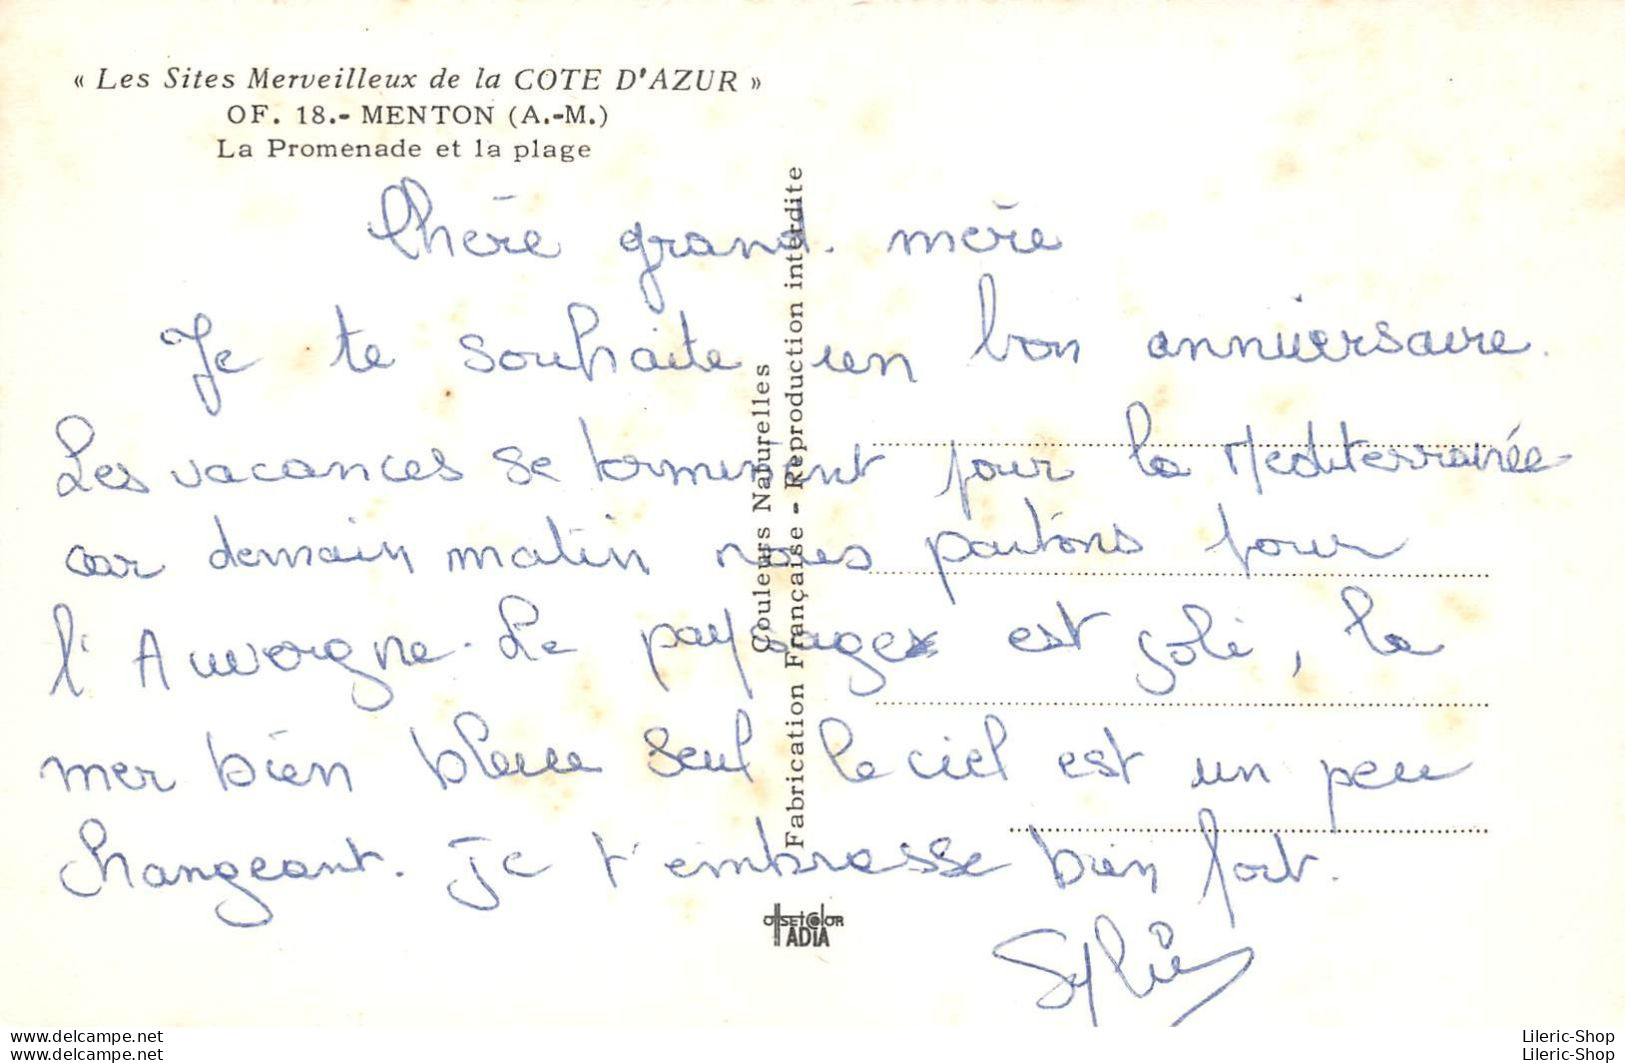 « Les Sites Merveilleux de la COTE D'AZUR »
OF. 18.- MENTON (A.-M.)
La Promenade et la plage
Chère grand-mère
Je te souhaite un bon anniversaire.
Les vacances se terminent pour la Mediterranée
car demain matin nous partons pour
l'Auvergne. Le paysage est joli, la
mer bien bleue seul le ciel est un peu
changeant. Je t'embrasse bien fort.
Sylvie
Couleurs Naturelles
Fabrication Française - Reproduction interdite
OffsetColor
ADIA
Lileric-Shop
Lileric-Shop
www.delcampe.net
www.delcampe.net